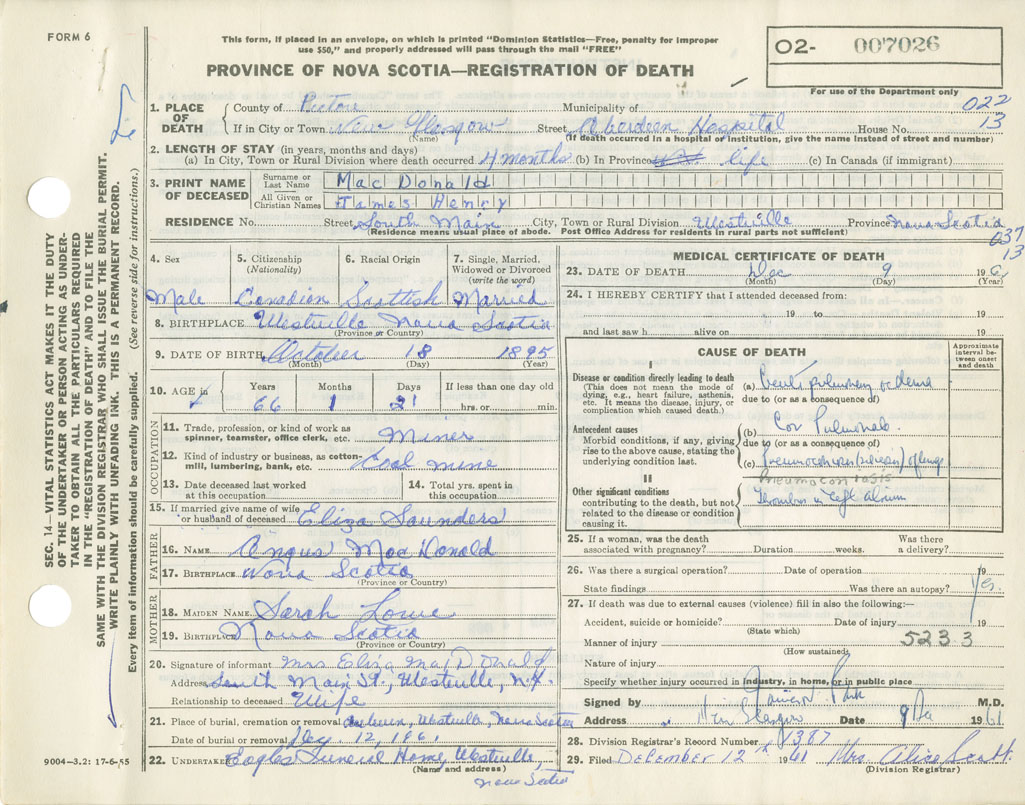 FORM 6
This form, if placed in an envelope, on which is printed "Dominion Statistics—Free, penalty for improper
use $50," and properly addressed will pass through the mail "FREE"
O2- 007026
PROVINCE OF NOVA SCOTIA—REGISTRATION OF DEATH
For use of the Department only
022
13
1. PLACE OF DEATH County of Pictou Municipality of
If in City or Town New Glasgow Street Aberdeen Hospital House No.
(Name) (If death occurred in a hospital or institution, give the name instead of street and number)
2. LENGTH OF STAY (in years, months and days)
(a) In City, Town or Rural Division where death occurred 4 months (b) In Province life (c) In Canada (if immigrant)
3. PRINT NAME OF DECEASED Surname or Last Name MacDonald
All Given or Christian Names James Henry
RESIDENCE No. Street South Main City, Town or Rural Division Westville Province Nova Scotia
(Residence means usual place of abode. Post Office Address for residents in rural parts not sufficient)
037
13
4. Sex 5. Citizenship (Nationality) 6. Racial Origin 7. Single, Married, Widowed or Divorced (write the word)
Male Canadian Scottish Married
8. BIRTHPLACE Westville Nova Scotia
(Province or Country)
9. DATE OF BIRTH October 18 1895
(Month) (Day) (Year)
10. AGE in Years Months Days If less than one day old
66 1 21 hrs. or min.
OCCUPATION
11. Trade, profession, or kind of work as
spinner, teamster, office clerk, etc. Miner
12. Kind of industry or business, as cotton-
mill, lumbering, bank, etc. Coal mine
13. Date deceased last worked at this occupation 14. Total yrs. spent in this occupation
15. If married give name of wife
or husband of deceased Eliza Saunders
FATHER
16. NAME Angus MacDonald
17. BIRTHPLACE Nova Scotia
(Province or Country)
MOTHER
18. MAIDEN NAME Sarah Lowe
19. BIRTHPLACE Nova Scotia
(Province or Country)
20. Signature of informant Mrs Eliza MacDonald
Address South Main St., Westville, N.S.
Relationship to deceased Wife
21. Place of burial, cremation or removal Westville, Nova Scotia
Date of burial or removal Dec. 12, 1961
22. UNDERTAKER Eagles Funeral Home, Westville,
(Name and address)
Nova Scotia
MEDICAL CERTIFICATE OF DEATH
23. DATE OF DEATH Dec 9 1961
(Month) (Day) (Year)
24. I HEREBY CERTIFY that I attended deceased from:
19 to 19
and last saw h alive on 19
CAUSE OF DEATH
Approximate interval between onset and death
I
Disease or condition directly leading to death
(This does not mean the mode of
dying, e.g., heart failure, asthenia,
etc. It means the disease, injury, or
complication which caused death.)
(a) Acute pulmonary oedema
due to (or as a consequence of)
Antecedent causes
Morbid conditions, if any, giving
rise to the above cause, stating the
underlying condition last.
(b) Cor Pulmonale.
due to (or as a consequence of)
(c) Pneumoconiosis of lungs
PNEUMOCONIOSIS
II
Other significant conditions
contributing to the death, but not
related to the disease or condition
causing it.
Thrombus in left atrium
25. If a woman, was the death
associated with pregnancy? Duration weeks. Was there a delivery?
26. Was there a surgical operation? Date of operation 19
State findings Was there an autopsy? Yes.
27. If death was due to external causes (violence) fill in also the following:—
Accident, suicide or homicide? Date of injury 19
(State which)
Manner of injury 523.3
(How sustained)
Nature of injury
Specify whether injury occurred in industry, in home, or in public place
Signed by M.D.
Address New Glasgow Date 9 Dec 1961
28. Division Registrar's Record Number 1387
29. Filed DECEMBER 12th 1961 Mrs Alice Scott
(Division Registrar)
SEC. 14—VITAL STATISTICS ACT MAKES IT THE DUTY
OF THE UNDERTAKER OR PERSON ACTING AS UNDER-
TAKER TO OBTAIN ALL THE PARTICULARS REQUIRED
IN THE "REGISTRATION OF DEATH" AND TO FILE THE
SAME WITH THE DIVISION REGISTRAR WHO SHALL ISSUE THE BURIAL PERMIT.
WRITE PLAINLY WITH UNFADING INK. THIS IS A PERMANENT RECORD.
Every item of information should be carefully supplied. (See reverse side for instructions.)
9004—3.2: 17-6-55